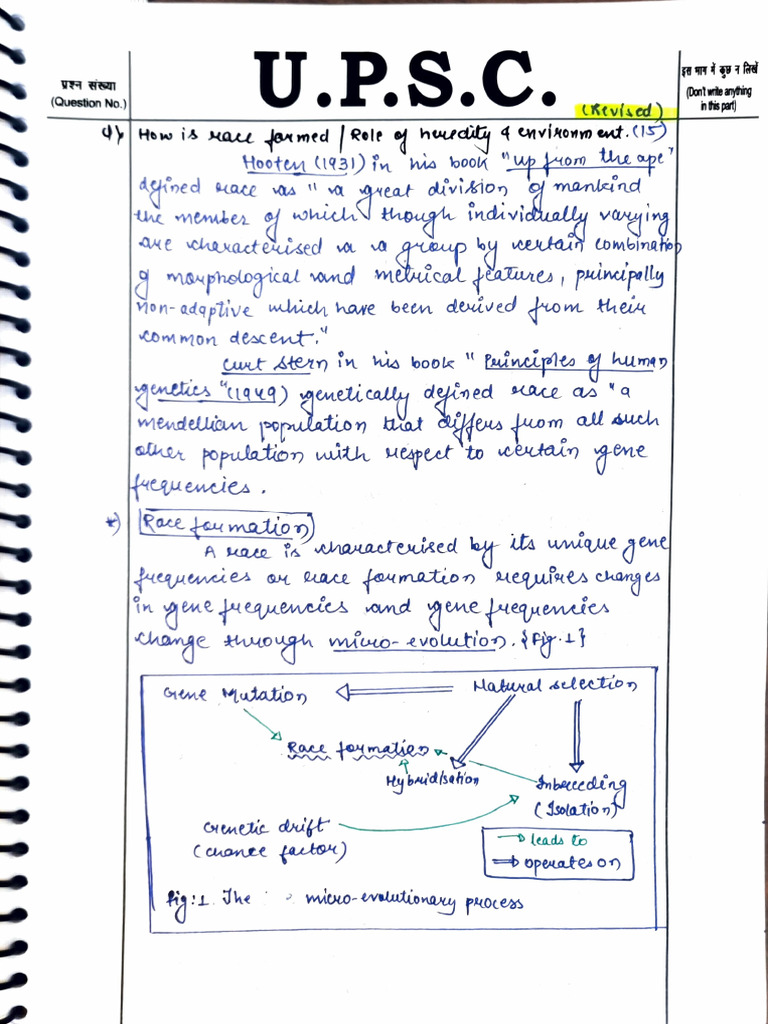 प्रश्न संख्या
(Question No.)
U.P.S.C.
इस भाग में कुछ न लिखें
(Don't write anything
in this part)
(Revised)
How is race formed / Role of heredity & environment. (15)
Hooten (1931) in his book "up from the ape"
defined race as "a great division of mankind
the member of which though individually varying
are characterised a a group by certain combination
of morphological and metrical features, principally
non-adaptive which have been derived from their
common descent."
Curt Stern in his book "Principles of human
genetics" (1949) genetically defined race as "a
mendellian population that differs from all such
other population with respect to certain gene
frequencies.
*) Race formation
A race is characterised by its unique gene
frequencies or race formation requires changes
in gene frequencies and gene frequencies
change through micro-evolution. {Fig.1}
Gene Mutation
Natural selection
Race formation
Hybridisation
Inbreeding
(Isolation)
Genetic drift
(chance factor)
leads to
operates on
Fig:1 The micro-evolutionary process